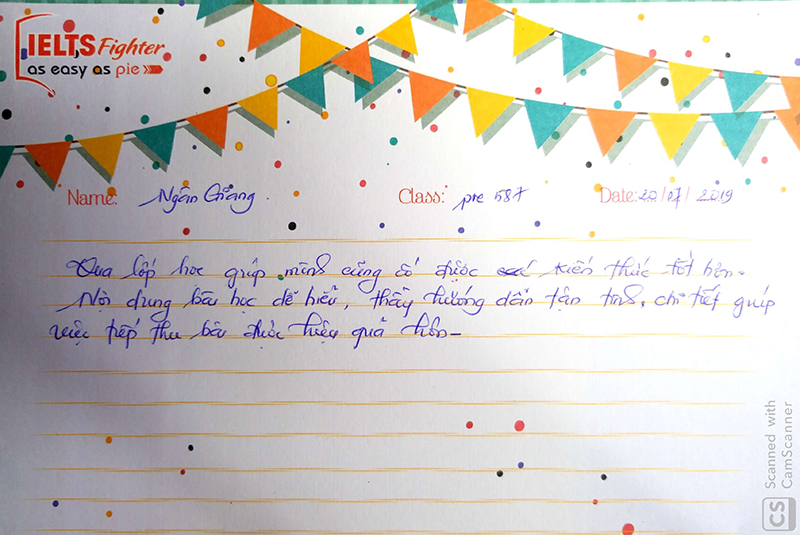 IELTS Fighter
as easy as pie
Name: Ngân Giang Class: pre 587 Date: 20/07/2019
Qua lớp học giúp mình củng cố được kiến thức tốt hơn.
Nội dung bài học dễ hiểu, thầy hướng dẫn tận tình, chi tiết giúp
việc tiếp thu bài được hiệu quả hơn.
Scanned with
CamScanner
CS